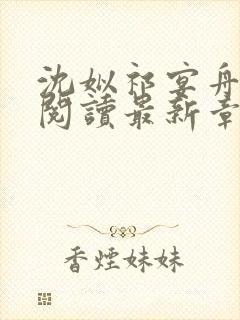 沈姒祁宴舟
閱讀最新章
香煙妹妹